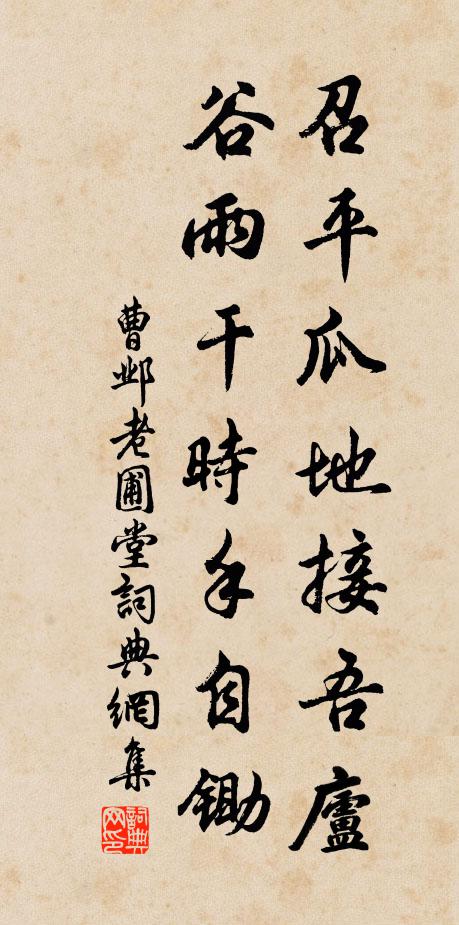 召平瓜地接吾廬
谷雨干時手自鋤
曹邺老圃堂詞典網集
詞典網印